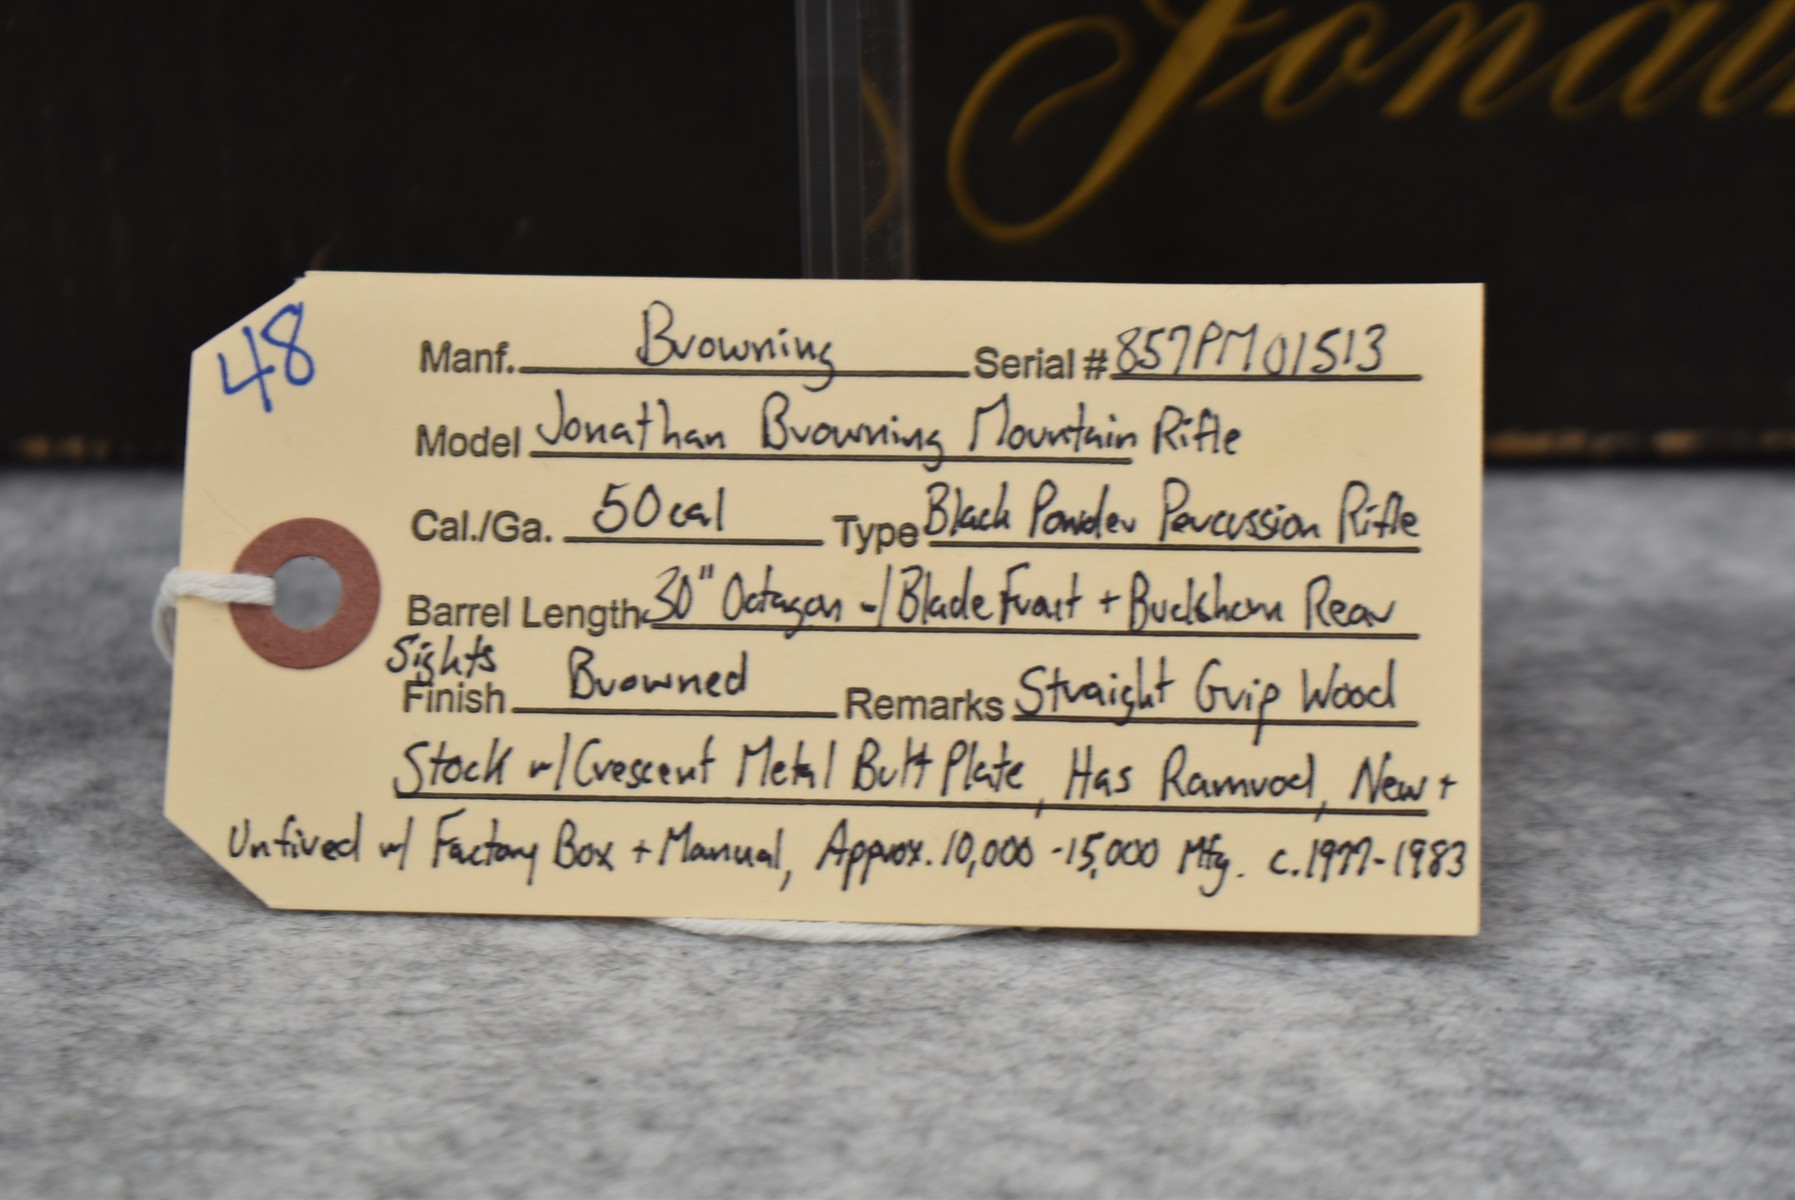 Jonat
48
Manf. Browning Serial # 857PM01513
Model Jonathan Browning Mountain Rifle
Cal./Ga. 50 cal Type Black Powder Percussion Rifle
Barrel Length 30" Octagon w/ Blade Front + Buckhorn Rear
Sights
Finish Browned Remarks Straight Grip Wood
Stock w/ Crescent Metal Butt Plate, Has Ramrod, New +
Unfired w/ Factory Box + Manual, Approx. 10,000 - 15,000 Mfg. c. 1977-1983